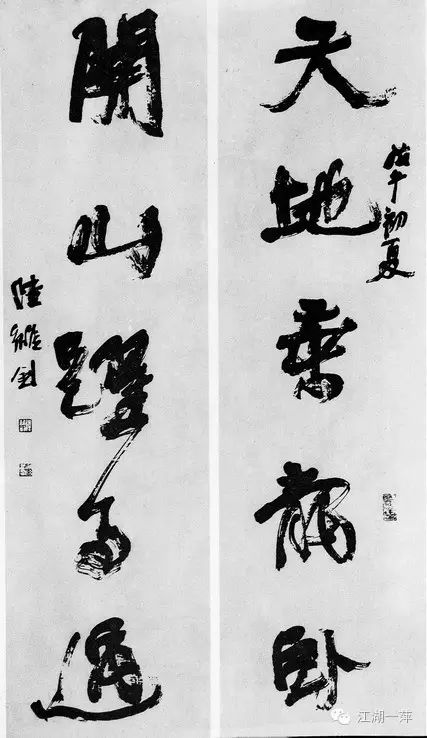 天地乘龍卧
戊午初夏
關山躍馬過
陸維釗
江湖一萍